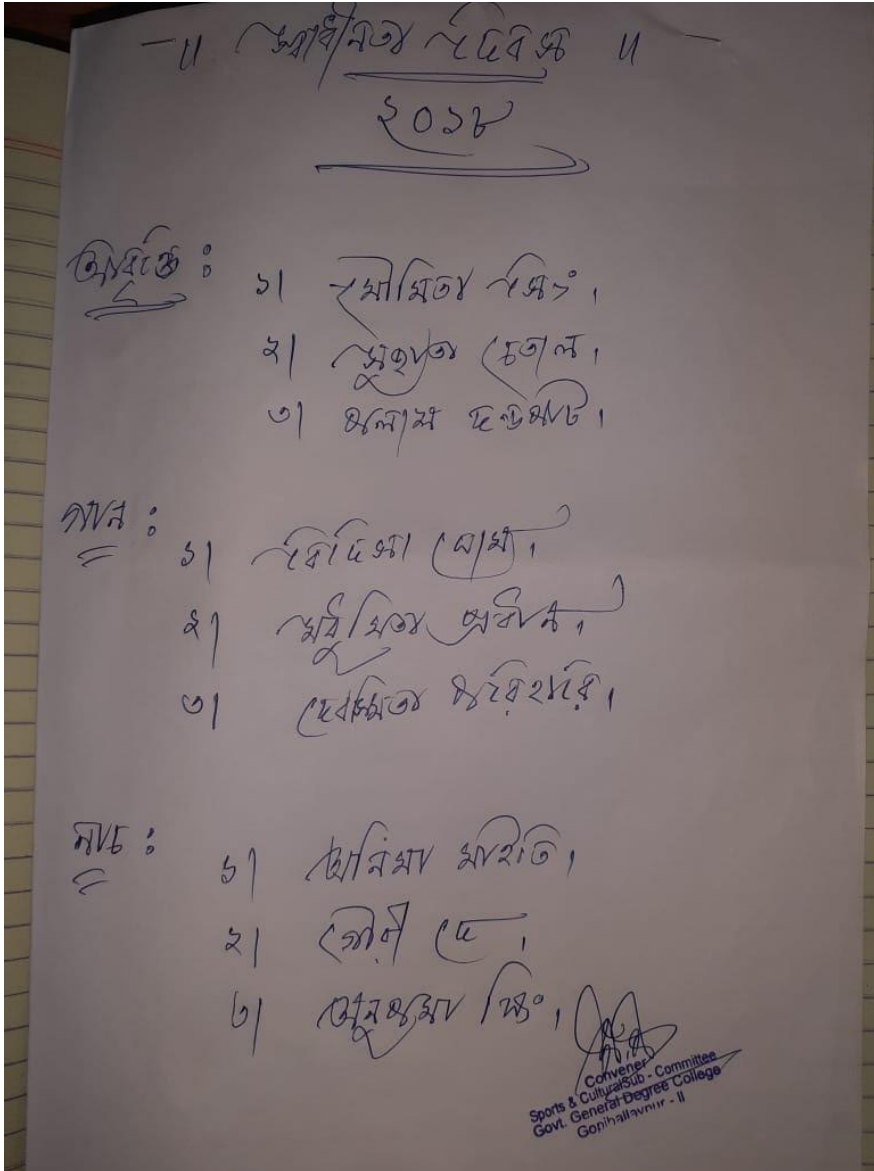 -॥ স্বাধীনতা দিবস ॥-
২০১৮
আবৃত্তি :
১| মৌমিতা সিং,
২| সুস্মিতা বেতাল,
৩| পলাশ দণ্ডপাট,
গান :
১| বিদিশা ঘোষ,
২| মধুমিতা প্রধান,
৩| দেবস্মিতা পরিহারি,
নাচ :
১| অনিমা মাইতি,
২| গৌরী দে,
৩| অনুপমা সিং,
Convener
Sports & Cultural Sub - Committee
Govt. General Degree College
Gopiballavpur - II